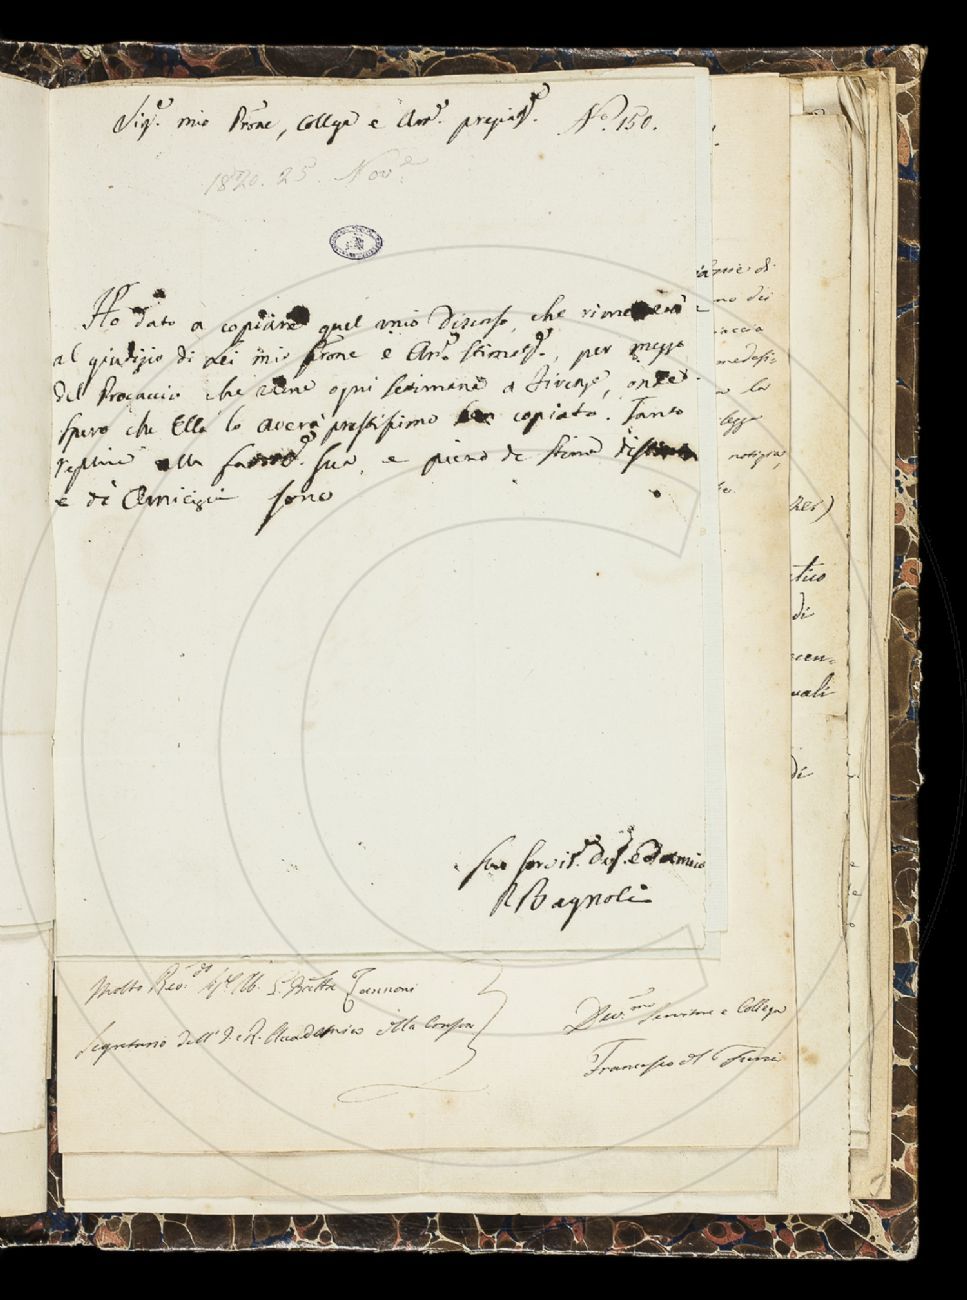 Sig.e mio Prone, Collega e Am.o pregiat.e No. 150.
1820. 25. Nov.e
Ho dato a copiare quel mio Discorso, che rimetterò
al giudizio di Lei mio Prone e Am.o Stimat.o, per mezzo
del Procaccio che viene ogni Settimana a Firenze, onde
spero che Ella lo averà prestissimo ben copiato. Tanto
replico alla sua, e pieno di stima distinta
e di Amicizia sono
Suo Servit.e Dev.o ed Amico
P Bagnoli
Molto Rev.do Sig.re Ab. G. Batta Zannoni
Segretario dell' I. e R. Accademia della Crusca
Dev.mo Servitore e Collega
Francesco del Furia